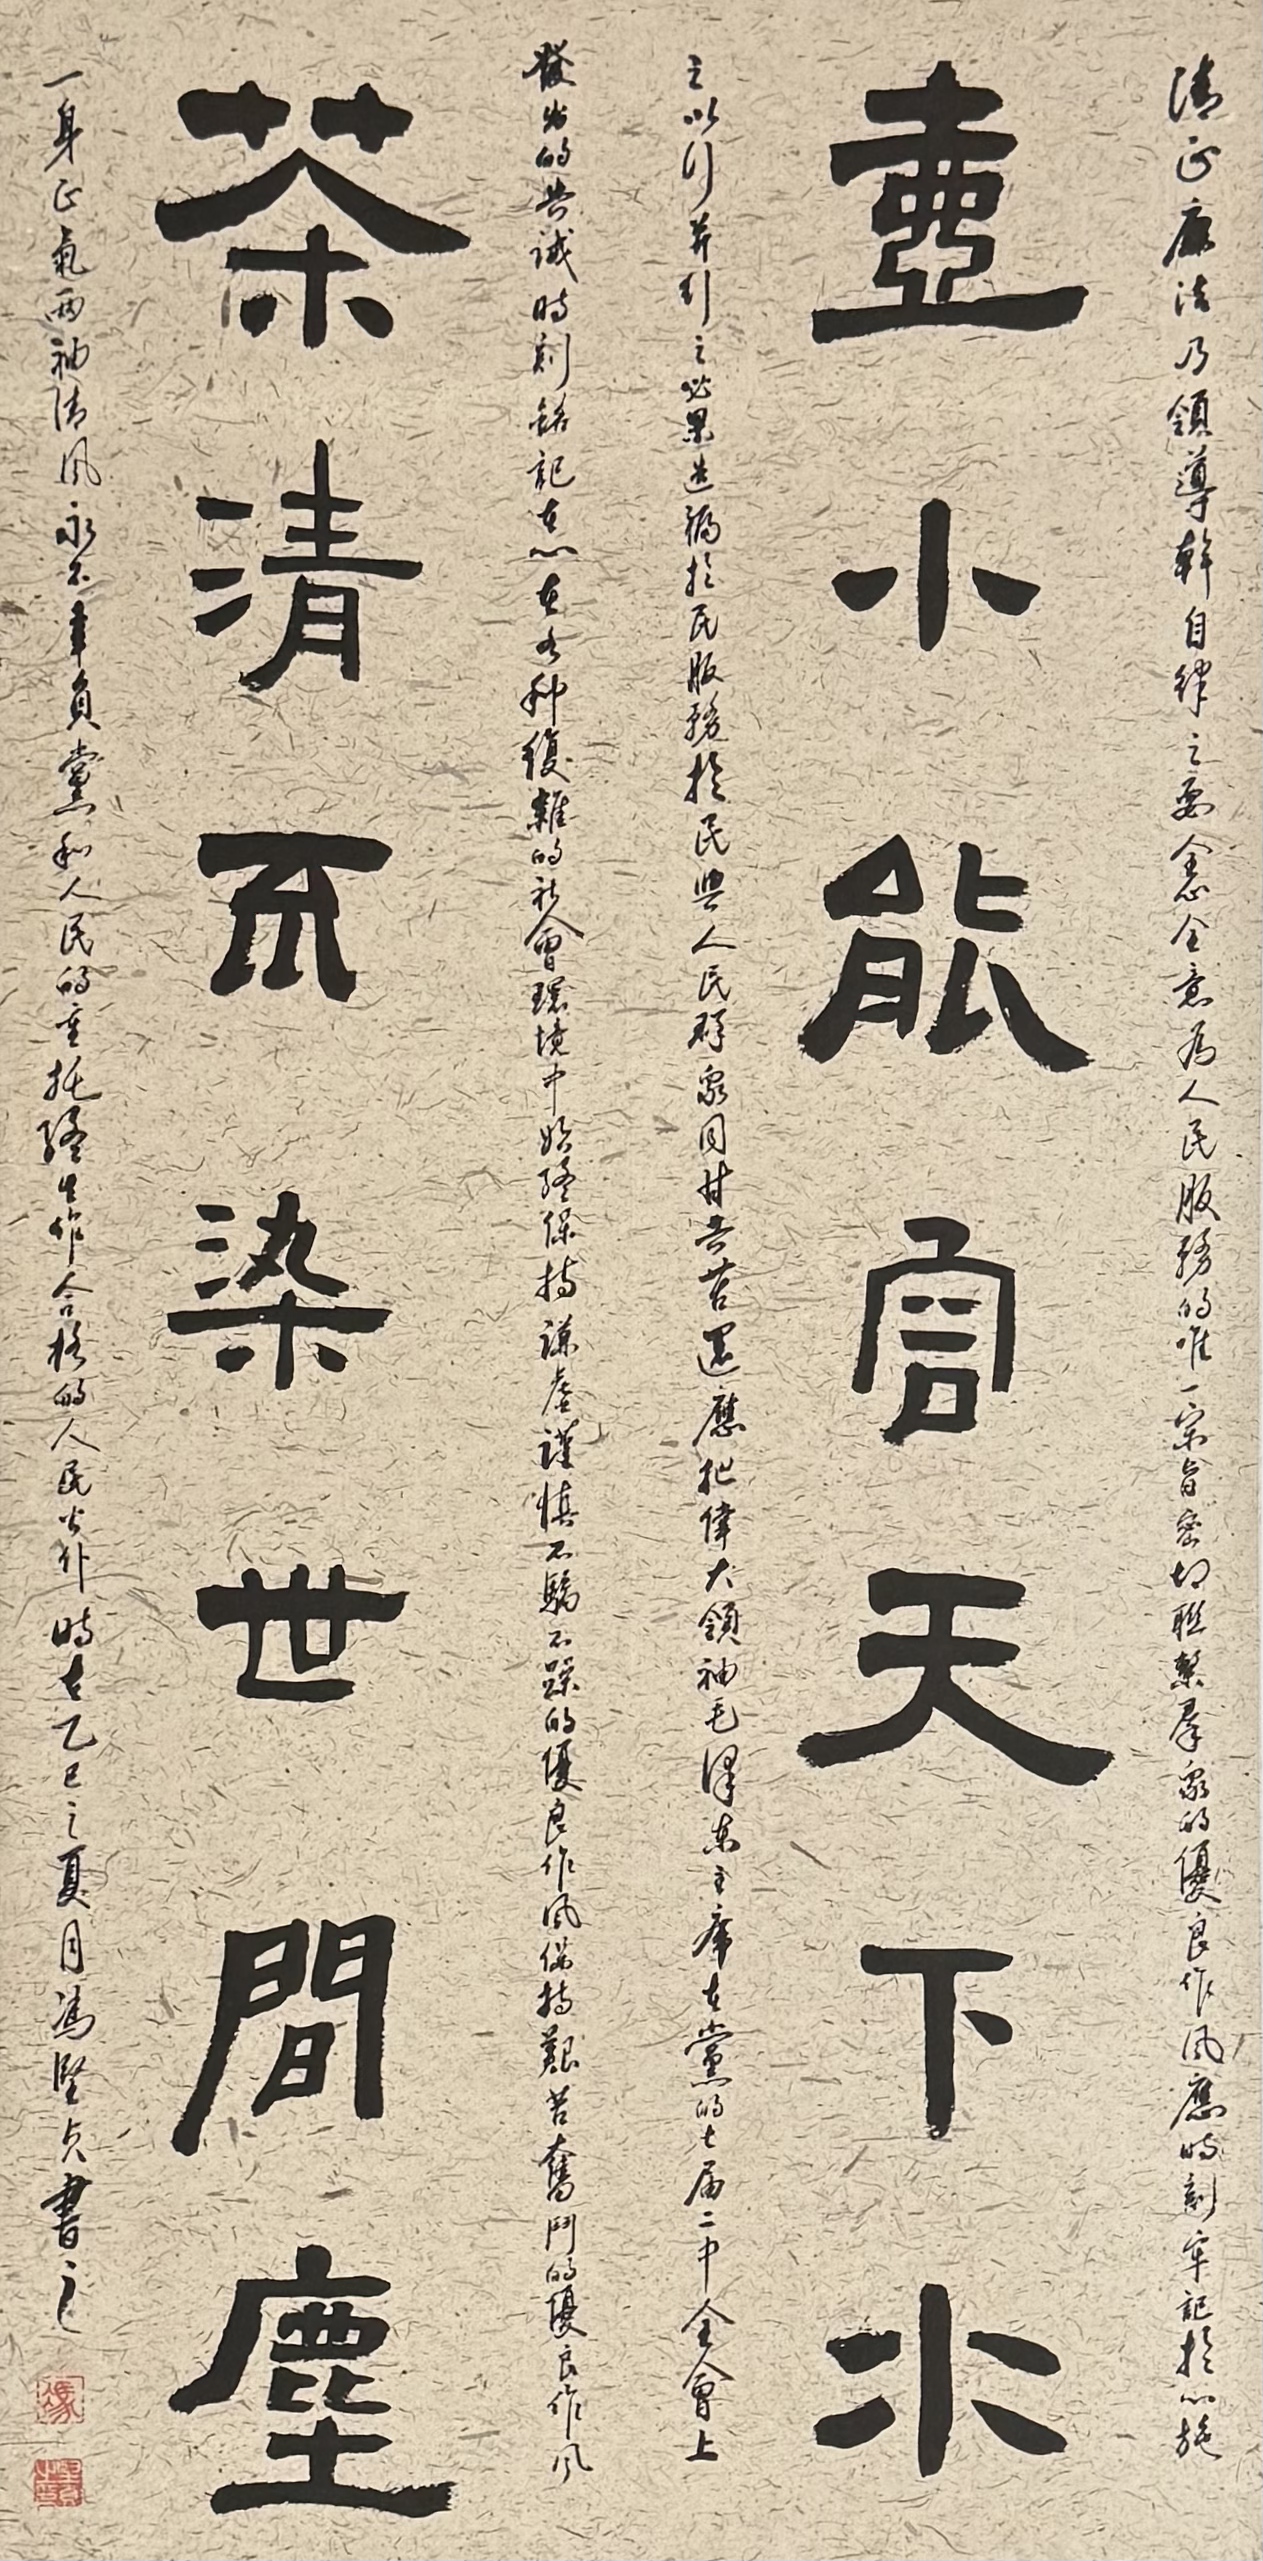 清正廉洁乃領導幹自律之要全心全意为人民服務的唯一宗旨密切聯繫羣衆的優良作风應時刻牢記於心施
壺小能容天下水
之以行并行之必果造福於民服務於民與人民群衆同甘共苦還應把偉大領袖毛澤东主席在黨的七届二中全會上
發出的告诫時刻銘記在心在各种複雜的社會環境中始終保持謙虚謹慎不驕不躁的優良作风保持艱苦奮鬥的優良作风
茶清不染世間塵
一身正氣两袖清风永不辜負黨和人民的重托終生作合格的人民公仆時在乙巳之夏月馮堅贞書之